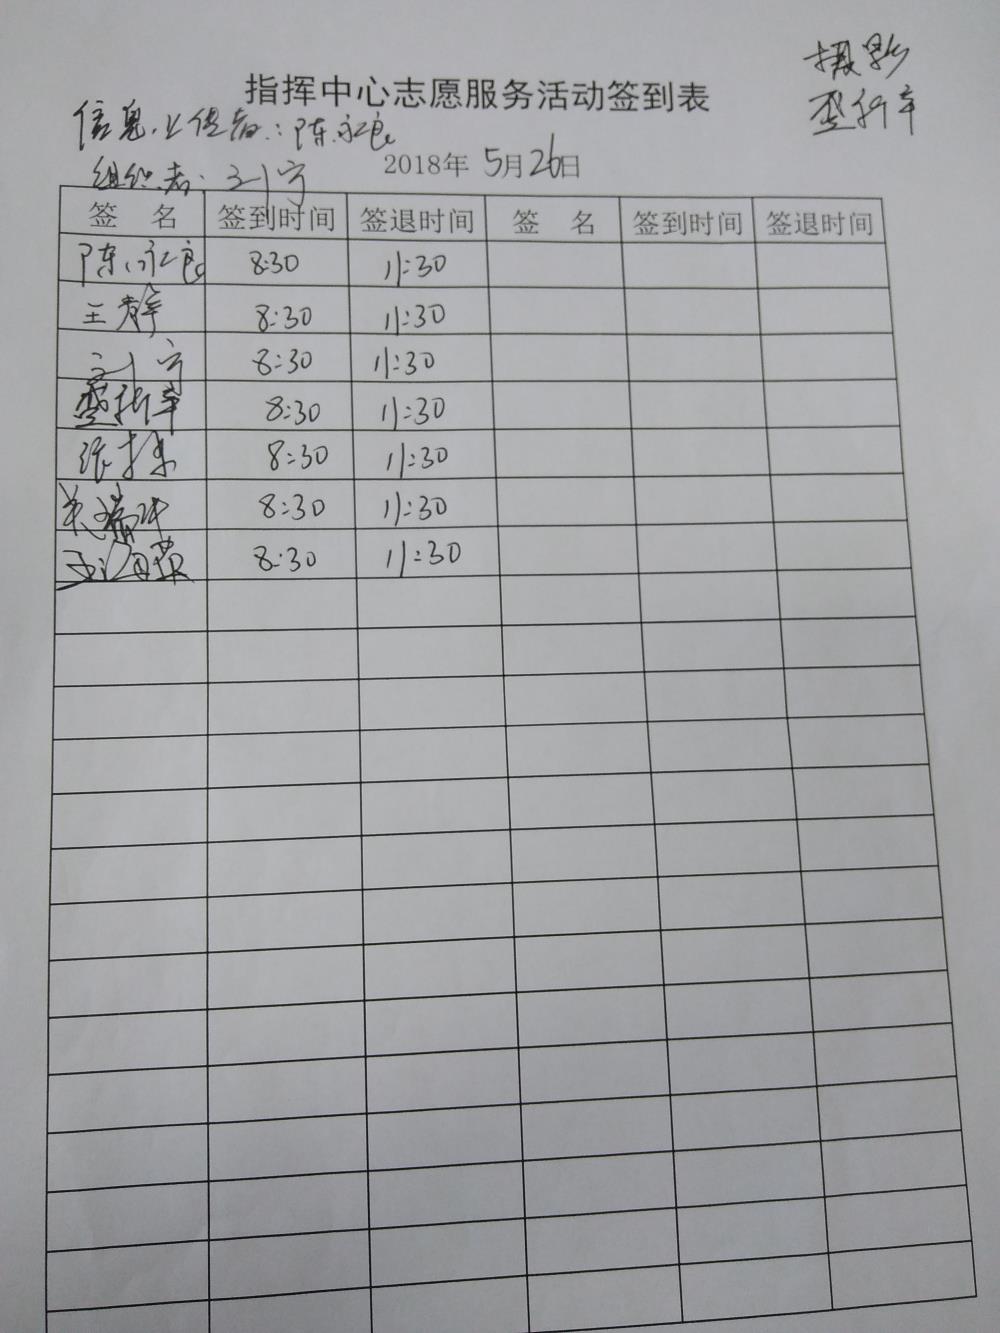 摄影
指挥中心志愿服务活动签到表
信息上传者:陈永良
2018年5月26日
组织者:刘宁
签 名 签到时间 签退时间 签 名 签到时间 签退时间
陈永良 8:30 11:30
王静 8:30 11:30
刘宁 8:30 11:30
8:30 11:30
张 8:30 11:30
8:30 11:30
8:30 11:30